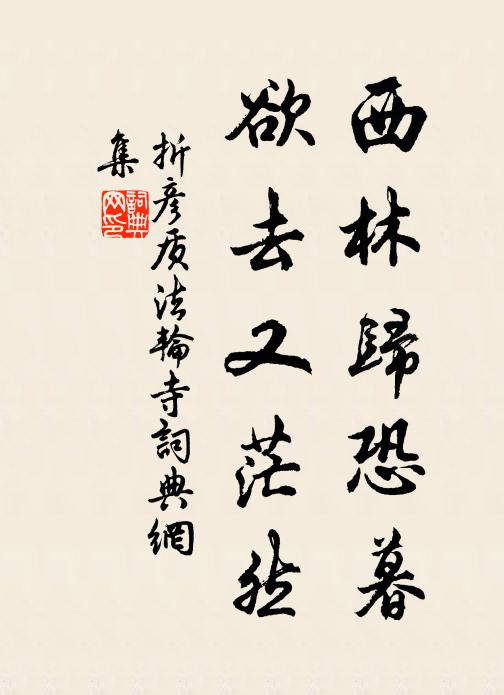 西林歸恐暮
欲去又茫然
折彥质法輪寺詞典網
集
詞典
网印